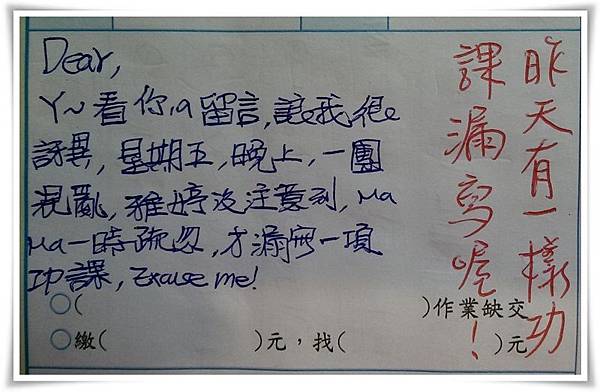 Dear,
Y~看你ㄉ留言,讓我很
訝異,星期五,晚上,一團
混亂,雅婷沒注意到,Ma
Ma一時疏忽,才漏寫一項
功課,Excuse me!
昨天有一樣功
課漏寫喔!
○( )作業缺交
○繳( )元,找( )元